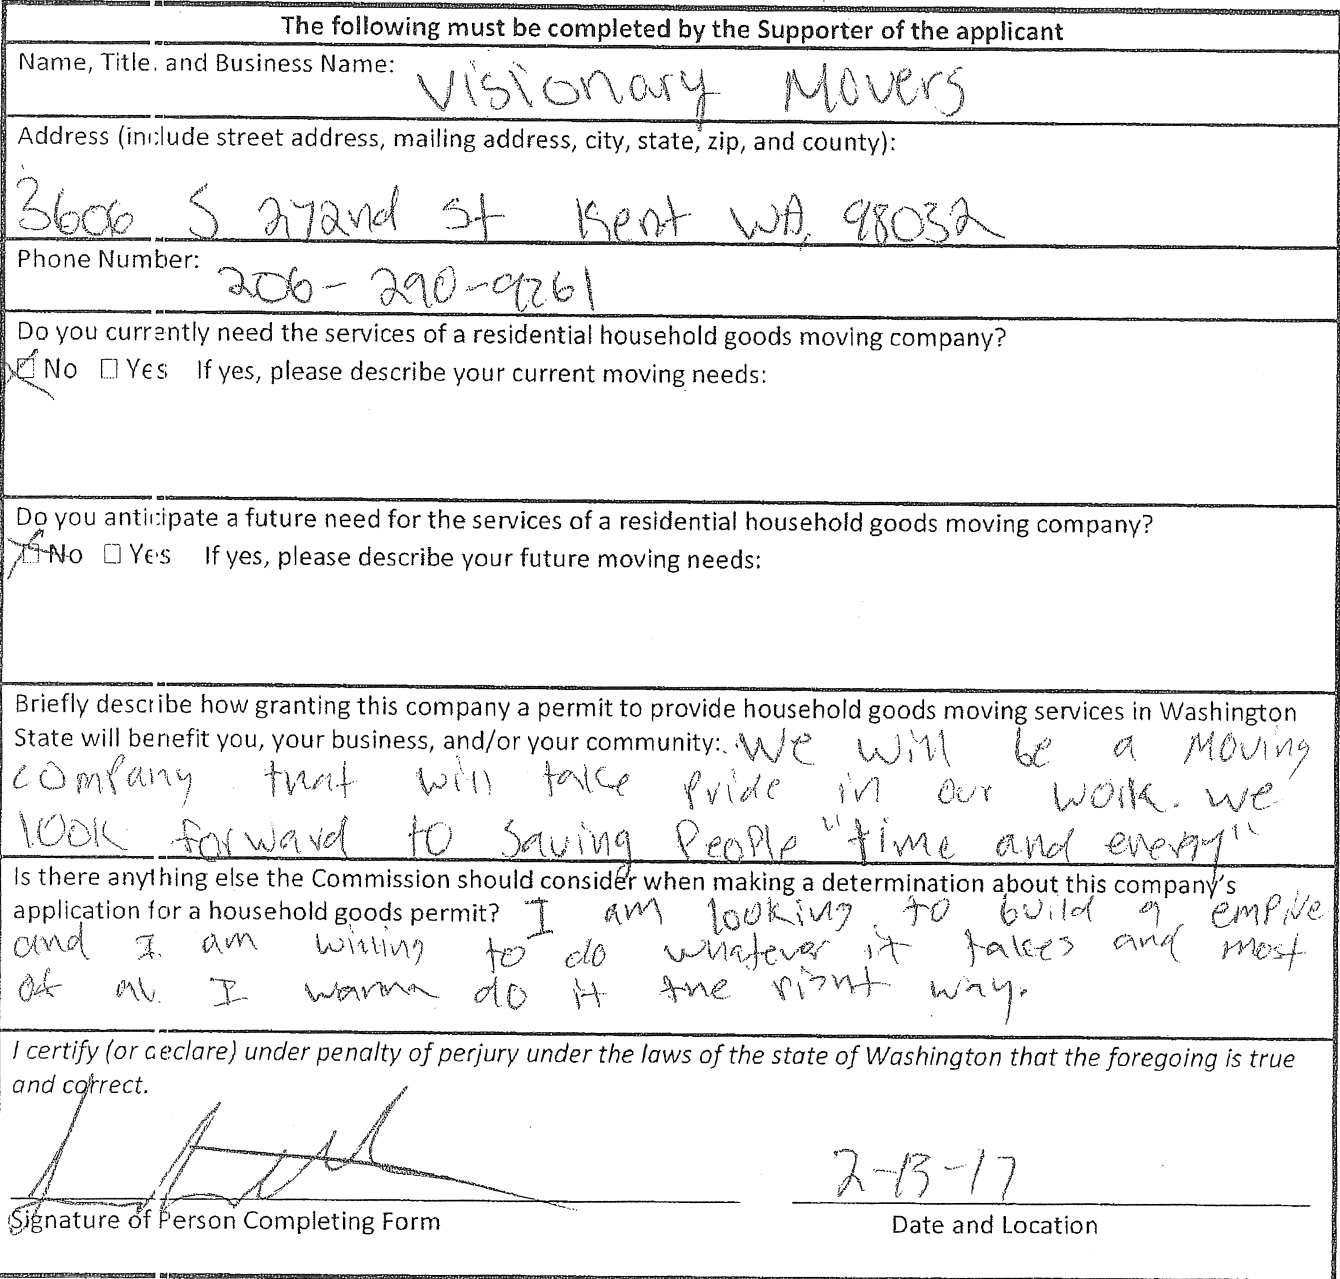 The following must be completed by the Supporter of the applicant
Name, Title, and Business Name: Visionary Movers
Address (include street address, mailing address, city, state, zip, and county):
3606 S 272nd St Kent WA, 98032
Phone Number: 206-290-9261
Do you currently need the services of a residential household goods moving company?
☑ No ☐ Yes If yes, please describe your current moving needs:
Do you anticipate a future need for the services of a residential household goods moving company?
☑ No ☐ Yes If yes, please describe your future moving needs:
Briefly describe how granting this company a permit to provide household goods moving services in Washington
State will benefit you, your business, and/or your community: We will be a moving
company that will take pride in our work. We
look forward to saving people "time and energy"
Is there anything else the Commission should consider when making a determination about this company's
application for a household goods permit? I am looking to build a empire
and I am willing to do whatever it takes and most
of all I wanna do it the right way.
I certify (or declare) under penalty of perjury under the laws of the state of Washington that the foregoing is true
and correct.
2-13-17
Signature of Person Completing Form Date and Location